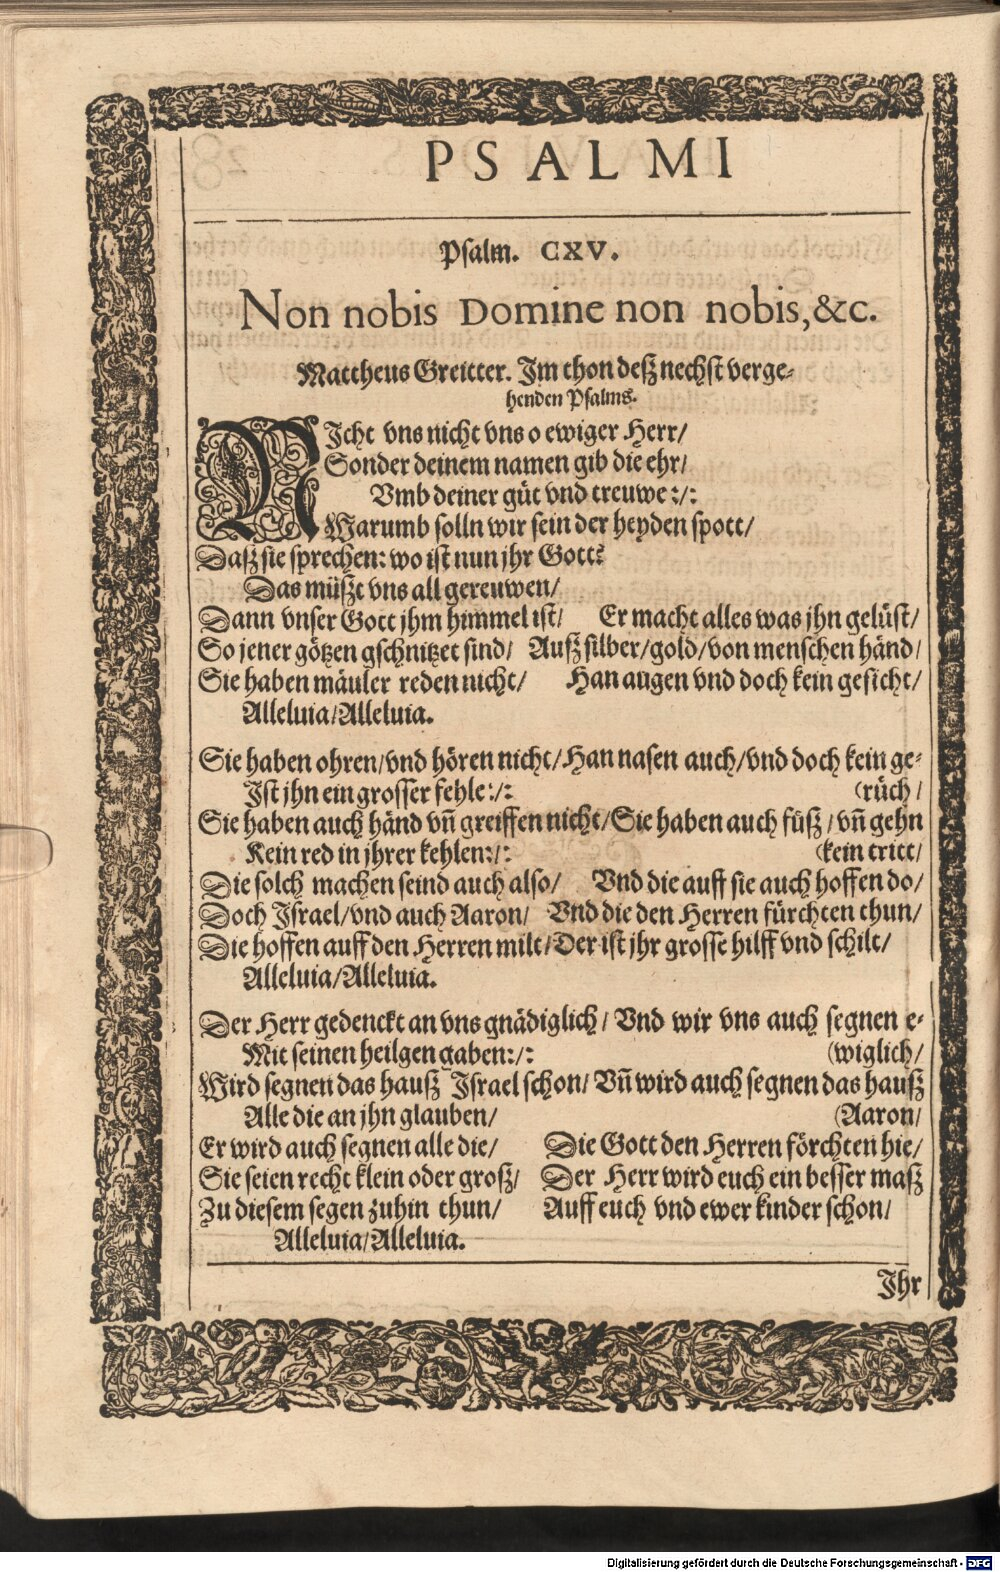 PSALMI
Psalm. CXV.
Non nobis Domine non nobis, &c.
Mattheus Greitter. Im thon deß nechst verge-
henden Psalms.
NIcht vns nicht vns o ewiger Herr/
Sonder deinem namen gib die ehr/
Vmb deiner güt vnd treuwe :/:
Warumb solln wir sein der heyden spott/
Daß sie sprechen: wo ist nun jhr Gott?
Das müßt vns all gereuwen/
Dann vnser Gott jhm himmel ist/ Er macht alles was jhn gelüst/
So jener götzen gschnitzet sind/ Auß silber/gold/von menschen händ/
Sie haben mäuler reden nicht/ Han augen vnd doch kein gesicht/
Alleluia/Alleluia.
Sie haben ohren/vnd hören nicht/Han nasen auch/vnd doch kein ge-
Ist jhn ein grosser fehle:/: (rüch/
Sie haben auch händ vñ greiffen nicht/Sie haben auch füß/vñ gehn
Kein red in jhrer kehlen:/: (kein tritt/
Die solch machen seind auch also/ Vnd die auff sie auch hoffen do/
Doch Israel/vnd auch Aaron/ Vnd die den Herren fürchten thun/
Die hoffen auff den Herren milt/Der ist jhr grosse hilff vnd schilt/
Alleluia/Alleluia.
Der Herr gedenckt an vns gnädiglich/ Vnd wir vns auch segnen e-
Mit seinen heilgen gaben:/: (wiglich/
Wird segnen das hauß Israel schon/ Vñ wird auch segnen das hauß
Alle die an jhn glauben/ (Aaron/
Er wird auch segnen alle die/ Die Gott den Herren förchten hie/
Sie seien recht klein oder groß/ Der Herr wird euch ein besser maß
Zu diesem segen zuhin thun/ Auff euch vnd ewer kinder schon/
Alleluia/Alleluia.
Ihr
Digitalisierung gefördert durch die Deutsche Forschungsgemeinschaft - DFG